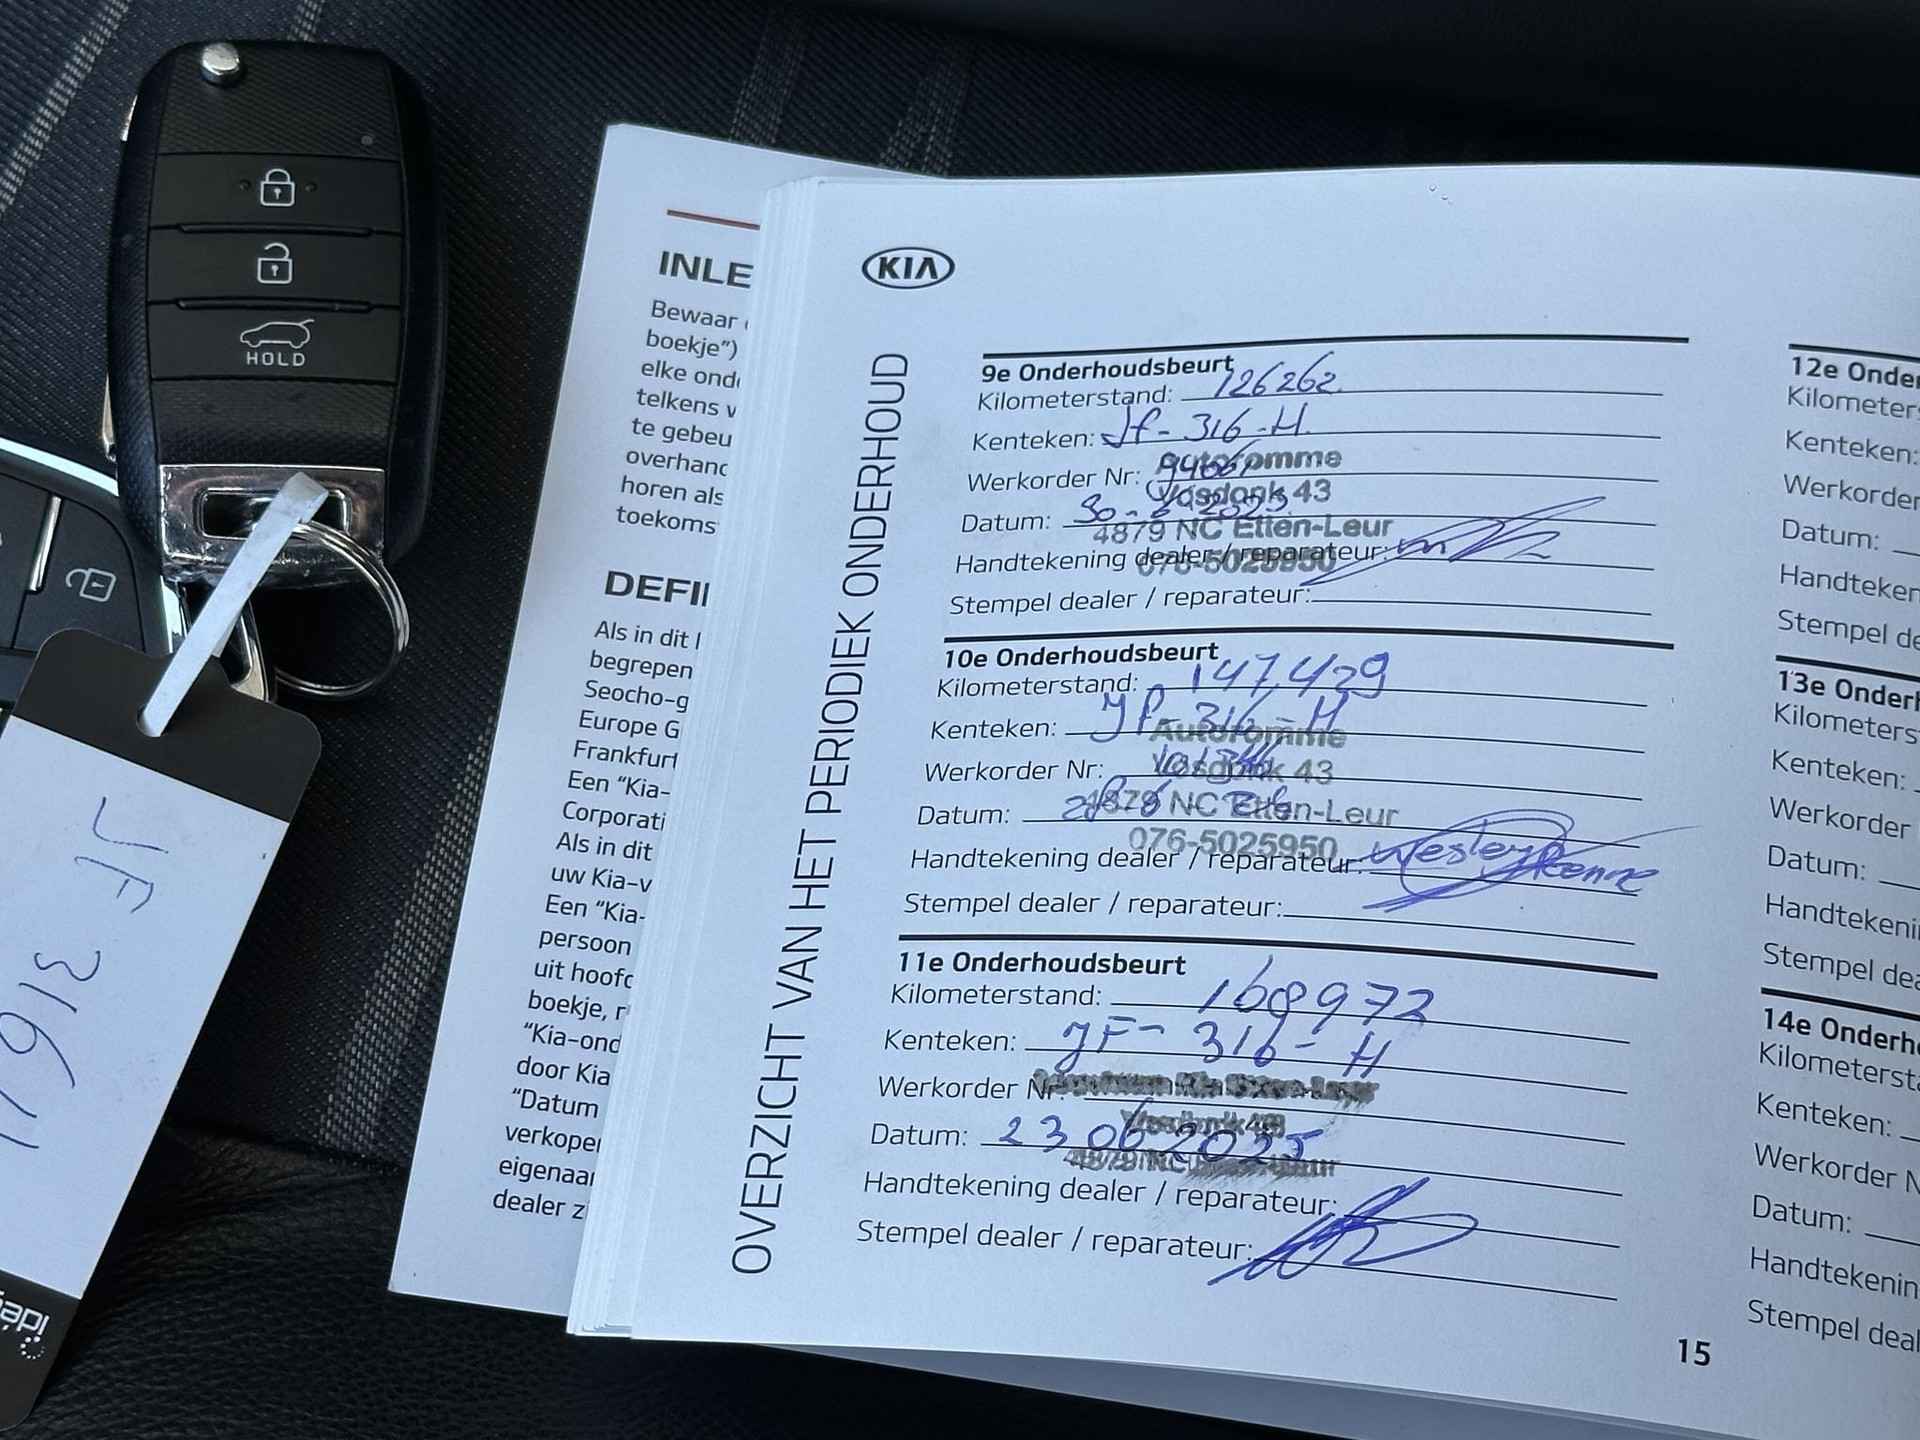 HOLD
JF 316H
INLE
Bewaar
boekje")
elke ond
telkens v
te gebeu
overhand
horen als
toekoms
DEFI
Als in dit
begrepen
Seocho-g
Europe G
Frankfurt
Een "Kia-
Corporati
Als in dit
uw Kia-v
Een "Kia-
persoon
uit hoofd
boekje, r
"Kia-ond
door Kia
"Datum
verkoper
eigenaar
dealer z
KIA
OVERZICHT VAN HET PERIODIEK ONDERHOUD
9e Onderhoudsbeurt
Kilometerstand: 126262
Kenteken: JF-316-H
Werkorder Nr:
Autoromme
Vosdonk 43
Datum: 30-6-2023
4879 NC Etten-Leur
Handtekening dealer / reparateur:
076-5025950
Stempel dealer / reparateur:
10e Onderhoudsbeurt
Kilometerstand: 147,429
Kenteken: JF-316-H
Autoromme
Werkorder Nr:
Vosdonk 43
Datum:
4879 NC Etten-Leur
076-5025950
Handtekening dealer / reparateur: Wesley
Stempel dealer / reparateur:
11e Onderhoudsbeurt
Kilometerstand: 168972
Kenteken: JF-316-H
Werkorder Nr:
Vosdonk 43
Datum: 23 06 2025
4879 NC
Handtekening dealer / reparateur:
Stempel dealer / reparateur:
12e Onder
Kilometers
Kenteken:
Werkorder
Datum:
Handteken
Stempel de
13e Onderh
Kilometers
Kenteken:
Werkorder
Datum:
Handtekeni
Stempel dea
14e Onderh
Kilometersta
Kenteken:
Werkorder N
Datum:
Handtekenin
Stempel deal
15